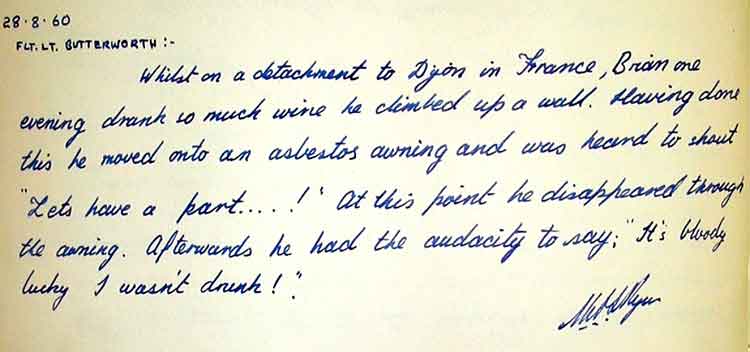 28·8·60
FLT. LT. BUTTERWORTH :-
Whilst on a detachment to Dijon in France, Brian one
evening drank so much wine he climbed up a wall. Having done
this he moved onto an asbestos awning and was heard to shout
"Lets have a part.....!" At this point he disappeared through
the awning. Afterwards he had the audacity to say; "It's bloody
lucky I wasn't drunk!".